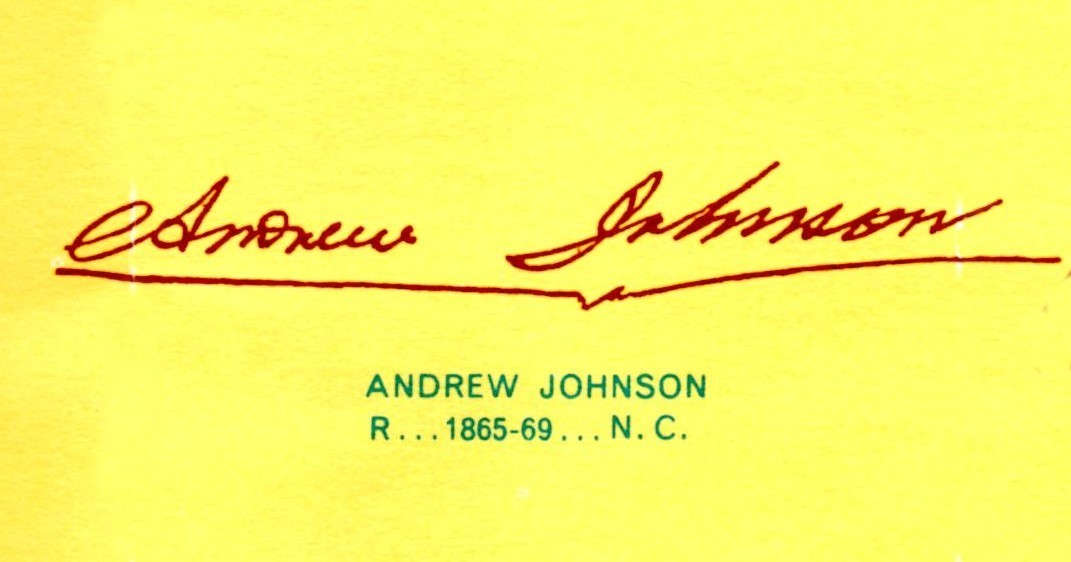 Andrew Johnson
ANDREW JOHNSON
R...1865-69...N.C.